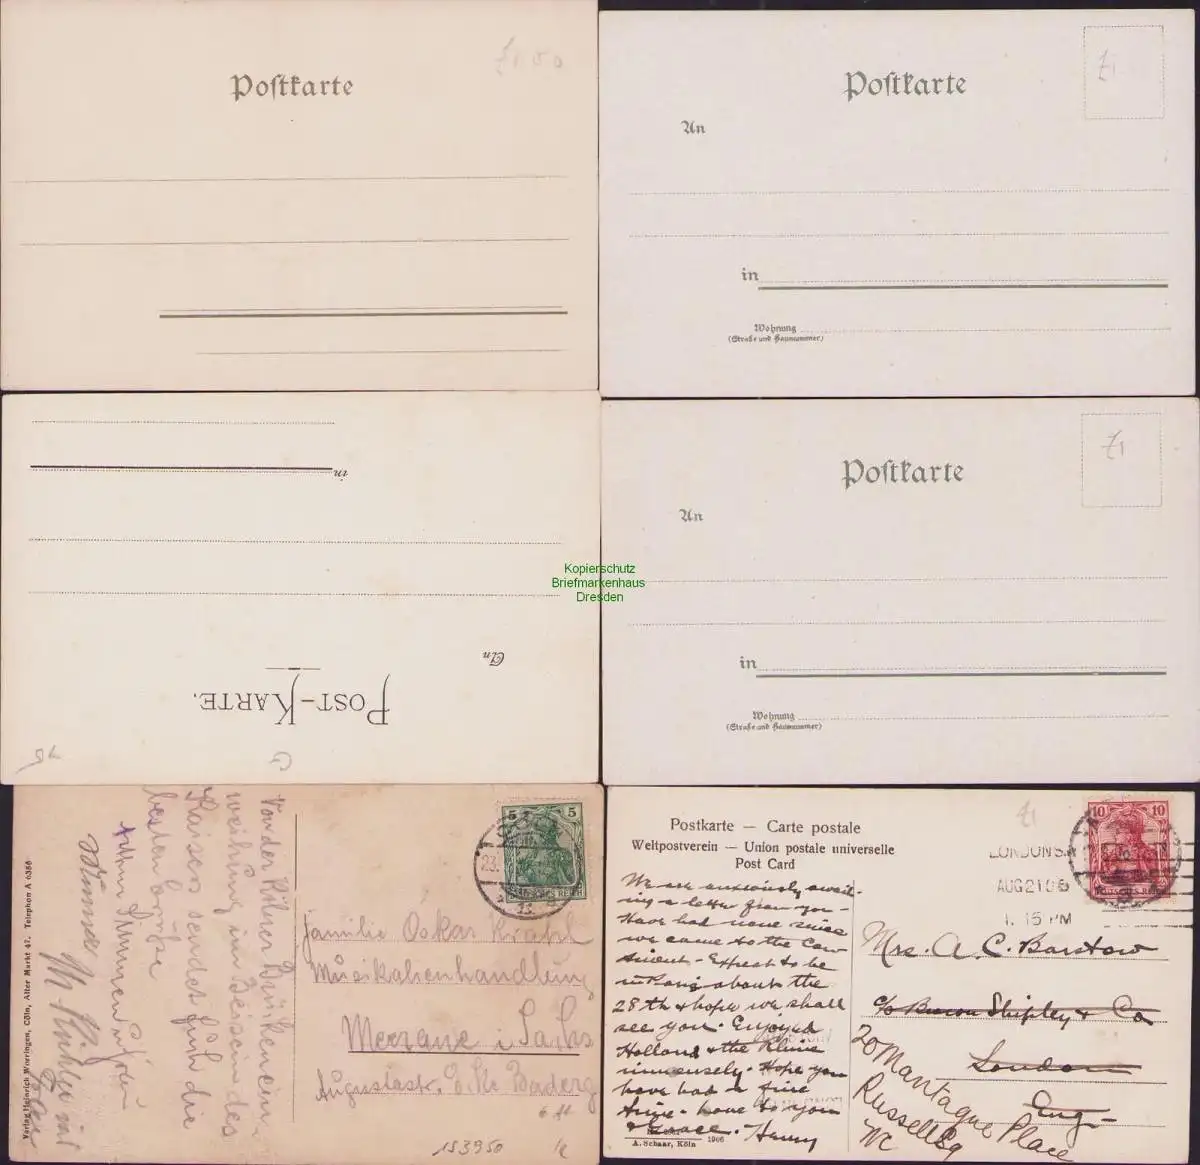 Postkarte
Postkarte
An
in
Wohnung
(Straße und Hausnummer)
in
An
POST-KARTE.
Postkarte
An
in
Wohnung
(Straße und Hausnummer)
Kopierschutz
Briefmarkenhaus
Dresden
Von der Kölner Brückenein-
weihung im Beisein des
Kaisers sendet Euch die
besten Grüße
5 5
23.
Familie Oskar Krahl
Musikalienhandlung
Meerane i. Sachs
Auguststr.
153950
Verlag Heinrich Wieringen, Cöln, Alter Markt 47. Telephon A 6356
Postkarte — Carte postale
Weltpostverein — Union postale universelle
Post Card
10 10
DEUTSCHES REICH
LONDON S.
AUG 21 06
1. 15 PM
We are anxiously await-
ing a letter from you-
Have had none since
we came to the Con
tinent- Expect to be
in Paris about the
28th & hope we shall
see you. Enjoyed
Holland & the Rhine
immensely. Hope you
have had a fine
time- love to you
& Grace. Henry
Mrs. A. C. Barstow
c/o Brown Shipley & Co
London
Eng-
20 Montague Place
Russell Sq
WC
A. Schaar, Köln 1906